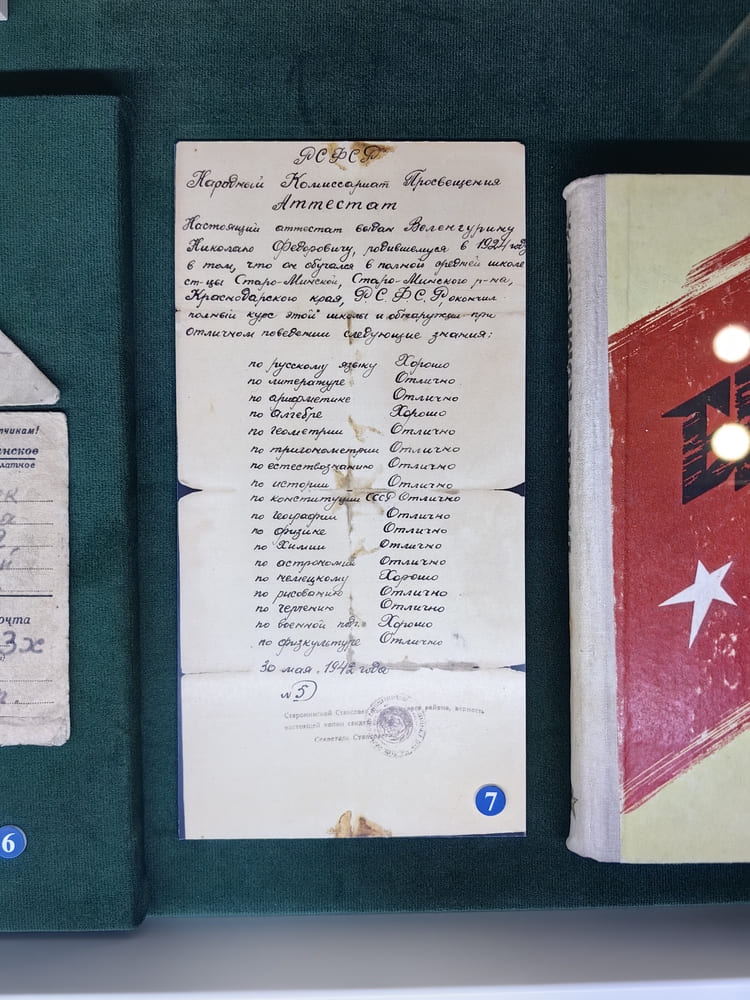 тчикам!
нское
латное
к
а
й
очта
3х
.
6
РСФСР
Народный Комиссариат Просвещения
Аттестат
Настоящий аттестат выдан Веленгурину
Николаю Федоровичу, родившемуся в 1924 году
в том, что он обучался в полной средней школе
ст-цы Старо-Минской, Старо-Минского р-на,
Краснодарского края, РС.Ф.С.Р окончил
полный курс этой школы и обнаружил при
отличном поведении следующие знания:
по русскому языку Хорошо
по литературе Отлично
по арифметике Отлично
по алгебре Хорошо
по геометрии Отлично
по тригонометрии Отлично
по естествознанию Отлично
по истории Отлично
по конституции СССР Отлично
по географии Отлично
по физике Отлично
по химии Отлично
по астрономии Отлично
по немецкому Хорошо
по рисованию Отлично
по черчению Отлично
по военной подг. Хорошо
по физкультуре Отлично
30 мая. 1942 года
№ 5
Староминский района, верность
настоящей копии
Секретарь
7